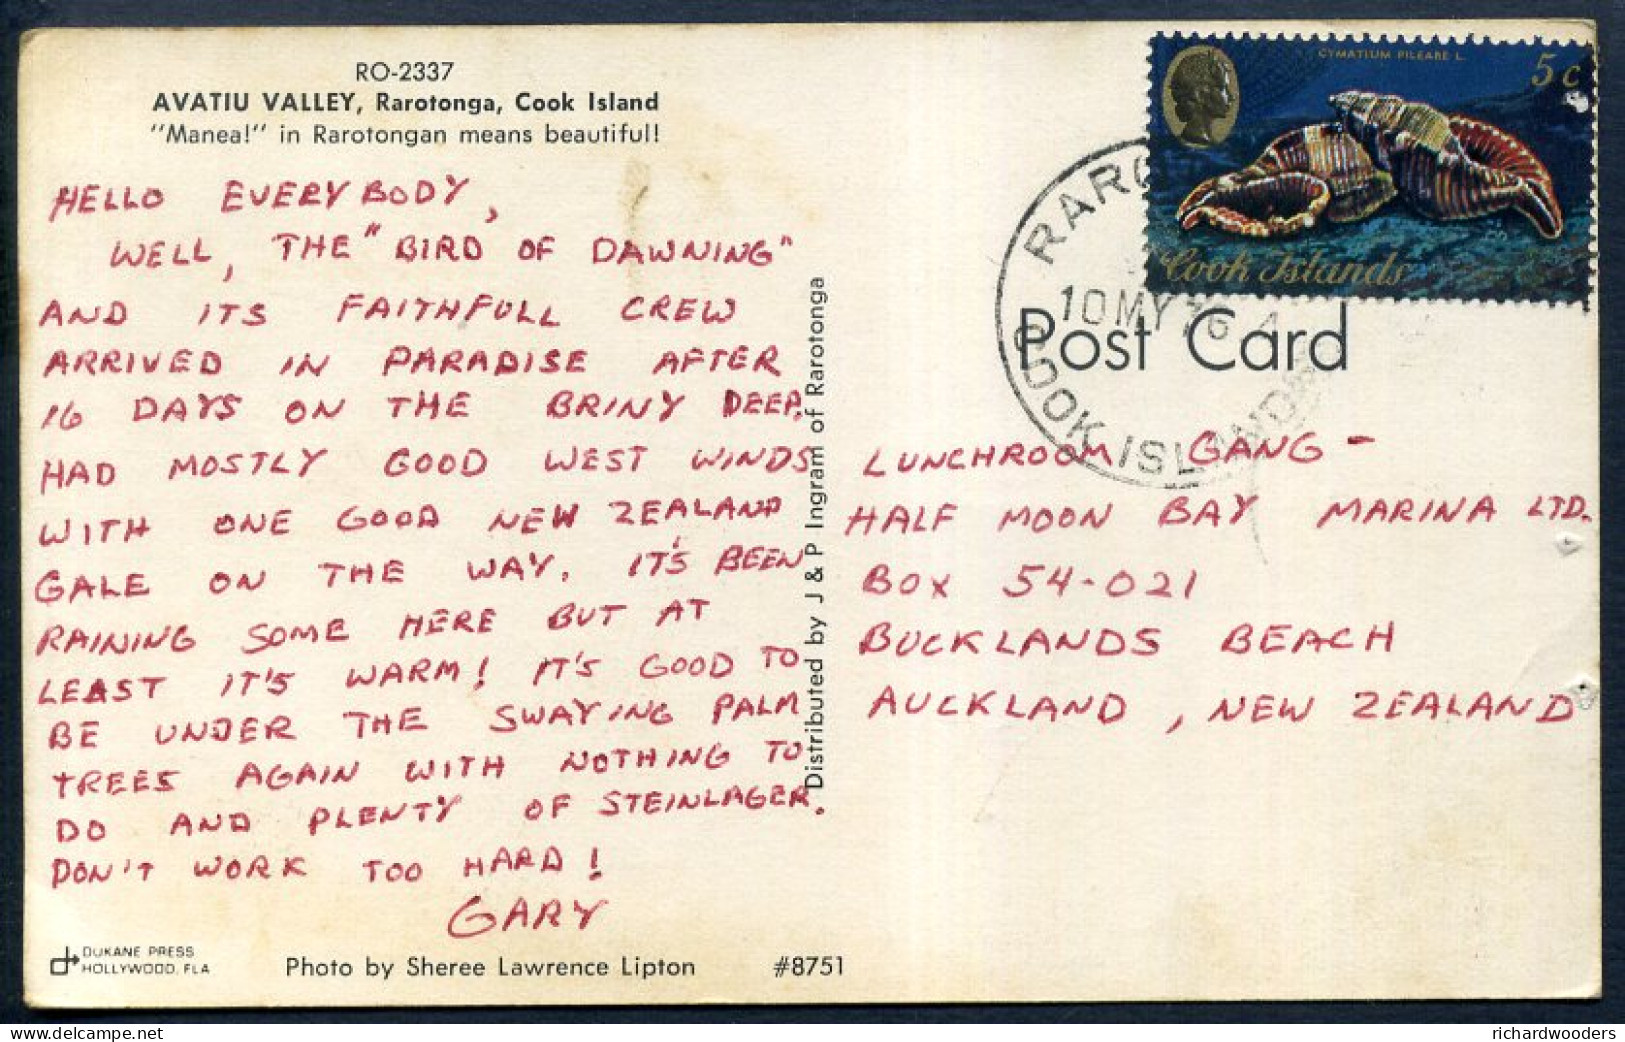 RO-2337
AVATIU VALLEY, Rarotonga, Cook Island
"Manea!" in Rarotongan means beautiful!
HELLO EVERYBODY,
WELL, THE "BIRD OF DAWNING"
AND ITS FAITHFULL CREW
ARRIVED IN PARADISE AFTER
16 DAYS ON THE BRINY DEEP.
HAD MOSTLY GOOD WEST WINDS
WITH ONE GOOD NEW ZEALAND
GALE ON THE WAY. IT'S BEEN
RAINING SOME HERE BUT AT
LEAST IT'S WARM! IT'S GOOD TO
BE UNDER THE SWAYING PALM
TREES AGAIN WITH NOTHING TO
DO AND PLENTY OF STEINLAGER.
DON'T WORK TOO HARD!
GARY
DUKANE PRESS
HOLLYWOOD, FLA
Photo by Sheree Lawrence Lipton
#8751
Distributed by J & P Ingram of Rarotonga
CYMATIUM PILEARE L.
5c
Cook Islands
10 MY 76
COOK ISLANDS
Post Card
LUNCHROOM GANG -
HALF MOON BAY MARINA LTD.
BOX 54-021
BUCKLANDS BEACH
AUCKLAND, NEW ZEALAND
richardwooders